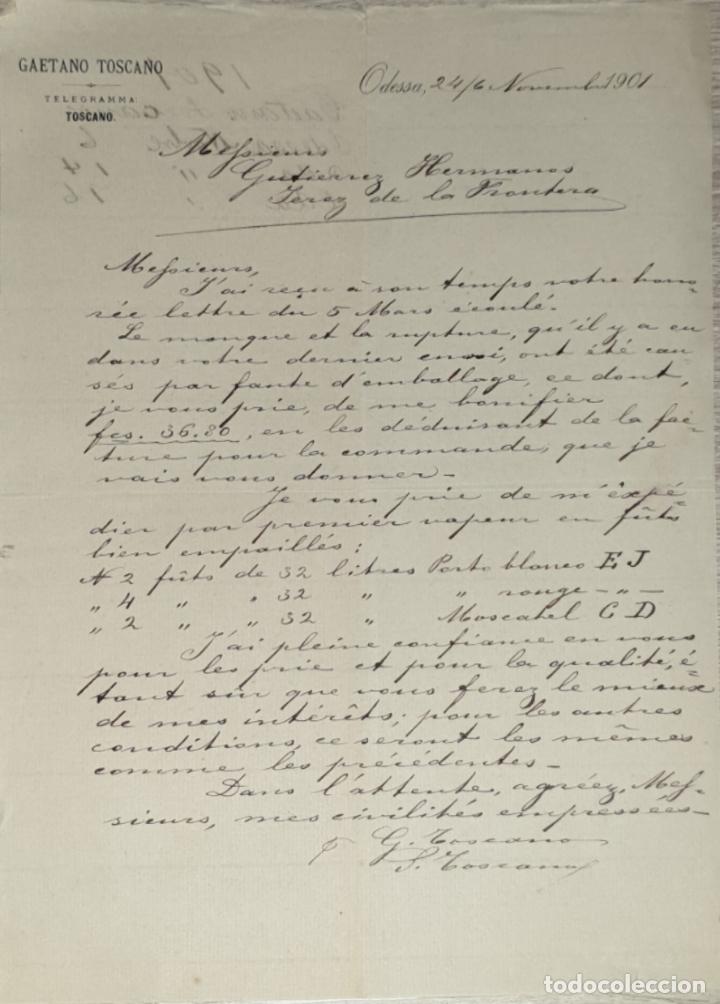 GAETANO TOSCANO
TELEGRAMMA:
TOSCANO.
Odessa, 24/6 Novembre 1901
Messieurs
Gutierrez Hermanos
Jerez de la Frontera
Messieurs,
J'ai reçu à son temps votre hono-
rée lettre du 5 Mars écoulé.
Le manque et la rupture, qu'il y a eu
dans votre dernier envoi, ont été cau
sés par faute d'emballage, ce dont,
je vous prie, de me bonifier
fcs. 36.80, en les déduisant de la fac-
ture pour la commande, que je
vais vous donner.-
Je vous prie de m'éxpé-
dier par premier vapeur en fûts
bien empaillés:
N 2 fûts de 32 litres Porto blanco E J
„ 4 „ „ 32 „ „ rouge -„-
„ 2 „ „ 32 „ Moscatel C D
J'ai pleine confiance en vous
pour les prie et pour la qualité, é-
tant sûr que vous ferez le mieux
de mes intérêts; pour les autres
conditions, ce seront les mêmes
comme les précédentes-
Dans l'attente, agréez, Mes-
sieurs, mes civilités empressées-
p G. Toscano
S. Toscano
todocoleccion